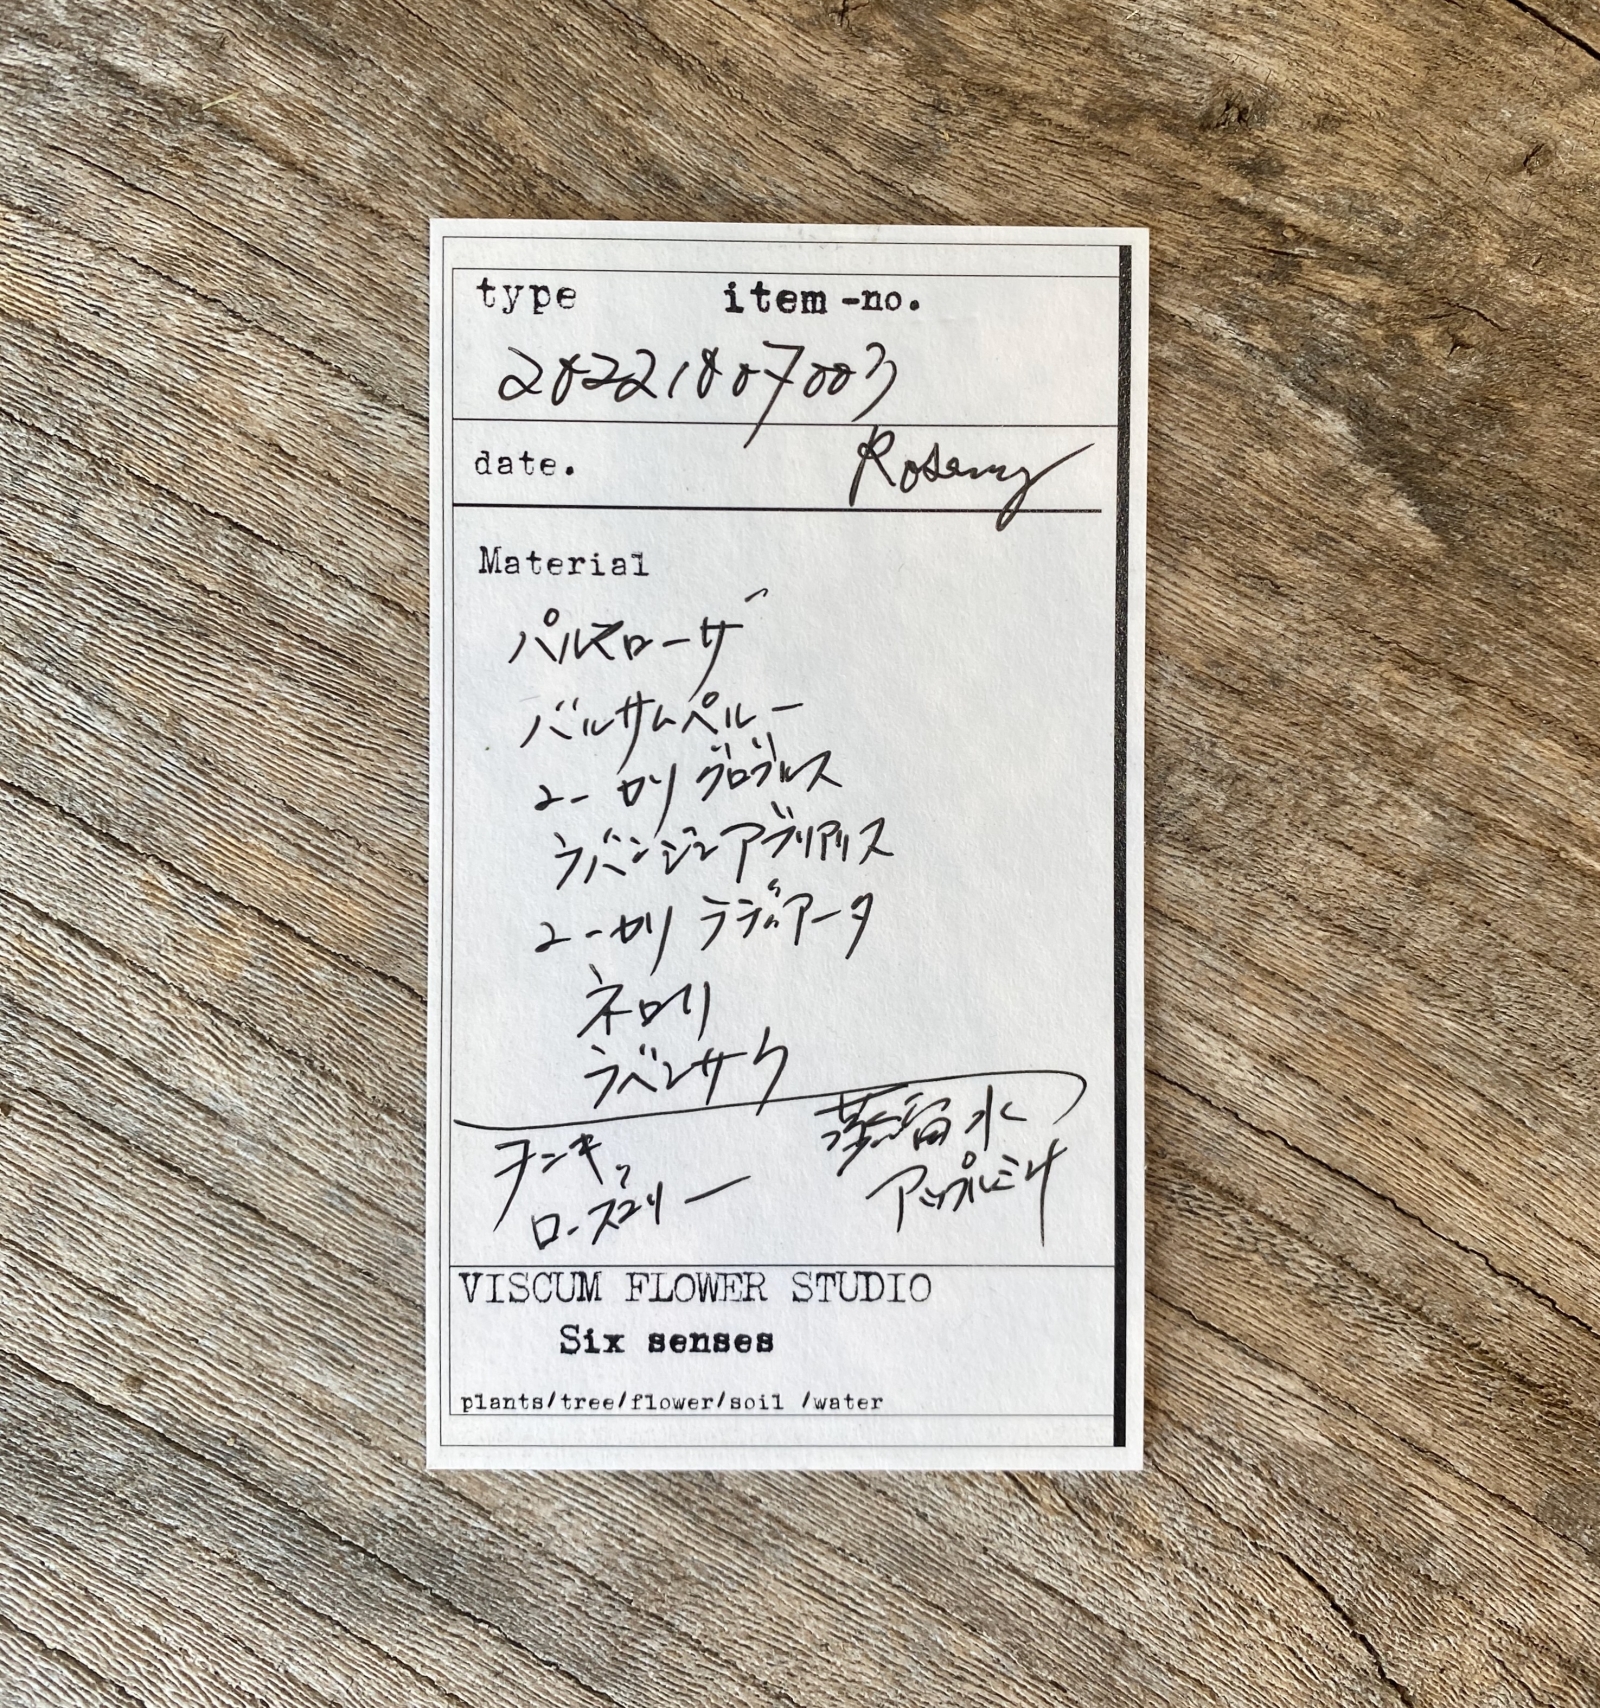 type item-no.
20221007003
date. Rosemy
Material
パルマローザ
バルサムペルー
ユーカリ グロブルス
ラバンジン アブリアリス
ユーカリ ラディアータ
ネロリ
ラベンサラ
蒸留水
チンキ
アップルミント
ローズマリー
VISCUM FLOWER STUDIO
Six senses
plants/tree/flower/soil /water